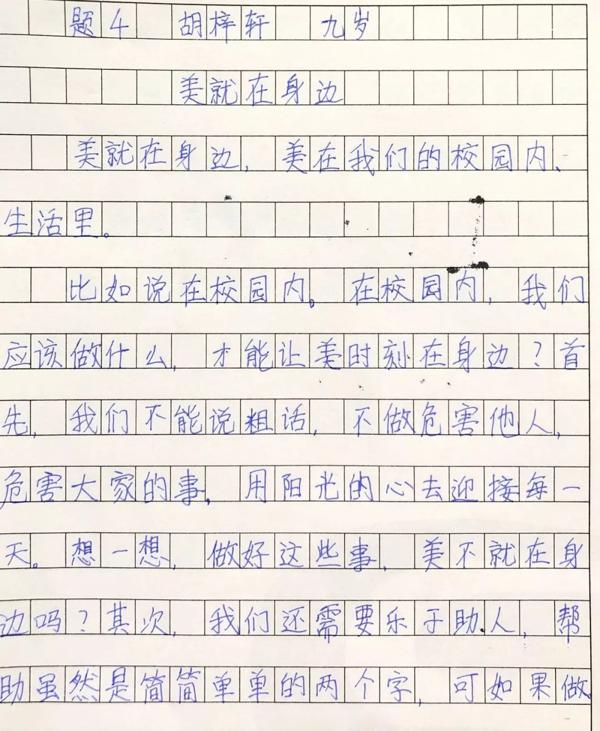 题4 胡梓轩 九岁
美就在身边
美就在身边，美在我们的校园内、
生活里。
比如说在校园内。在校园内，我们
应该做什么，才能让美时刻在身边？首
先，我们不能说粗话，不做危害他人，
危害大家的事，用阳光的心去迎接每一
天。想一想，做好这些事，美不就在身
边吗？其次，我们还需要乐于助人，帮
助虽然是简简单单的两个字，可如果做